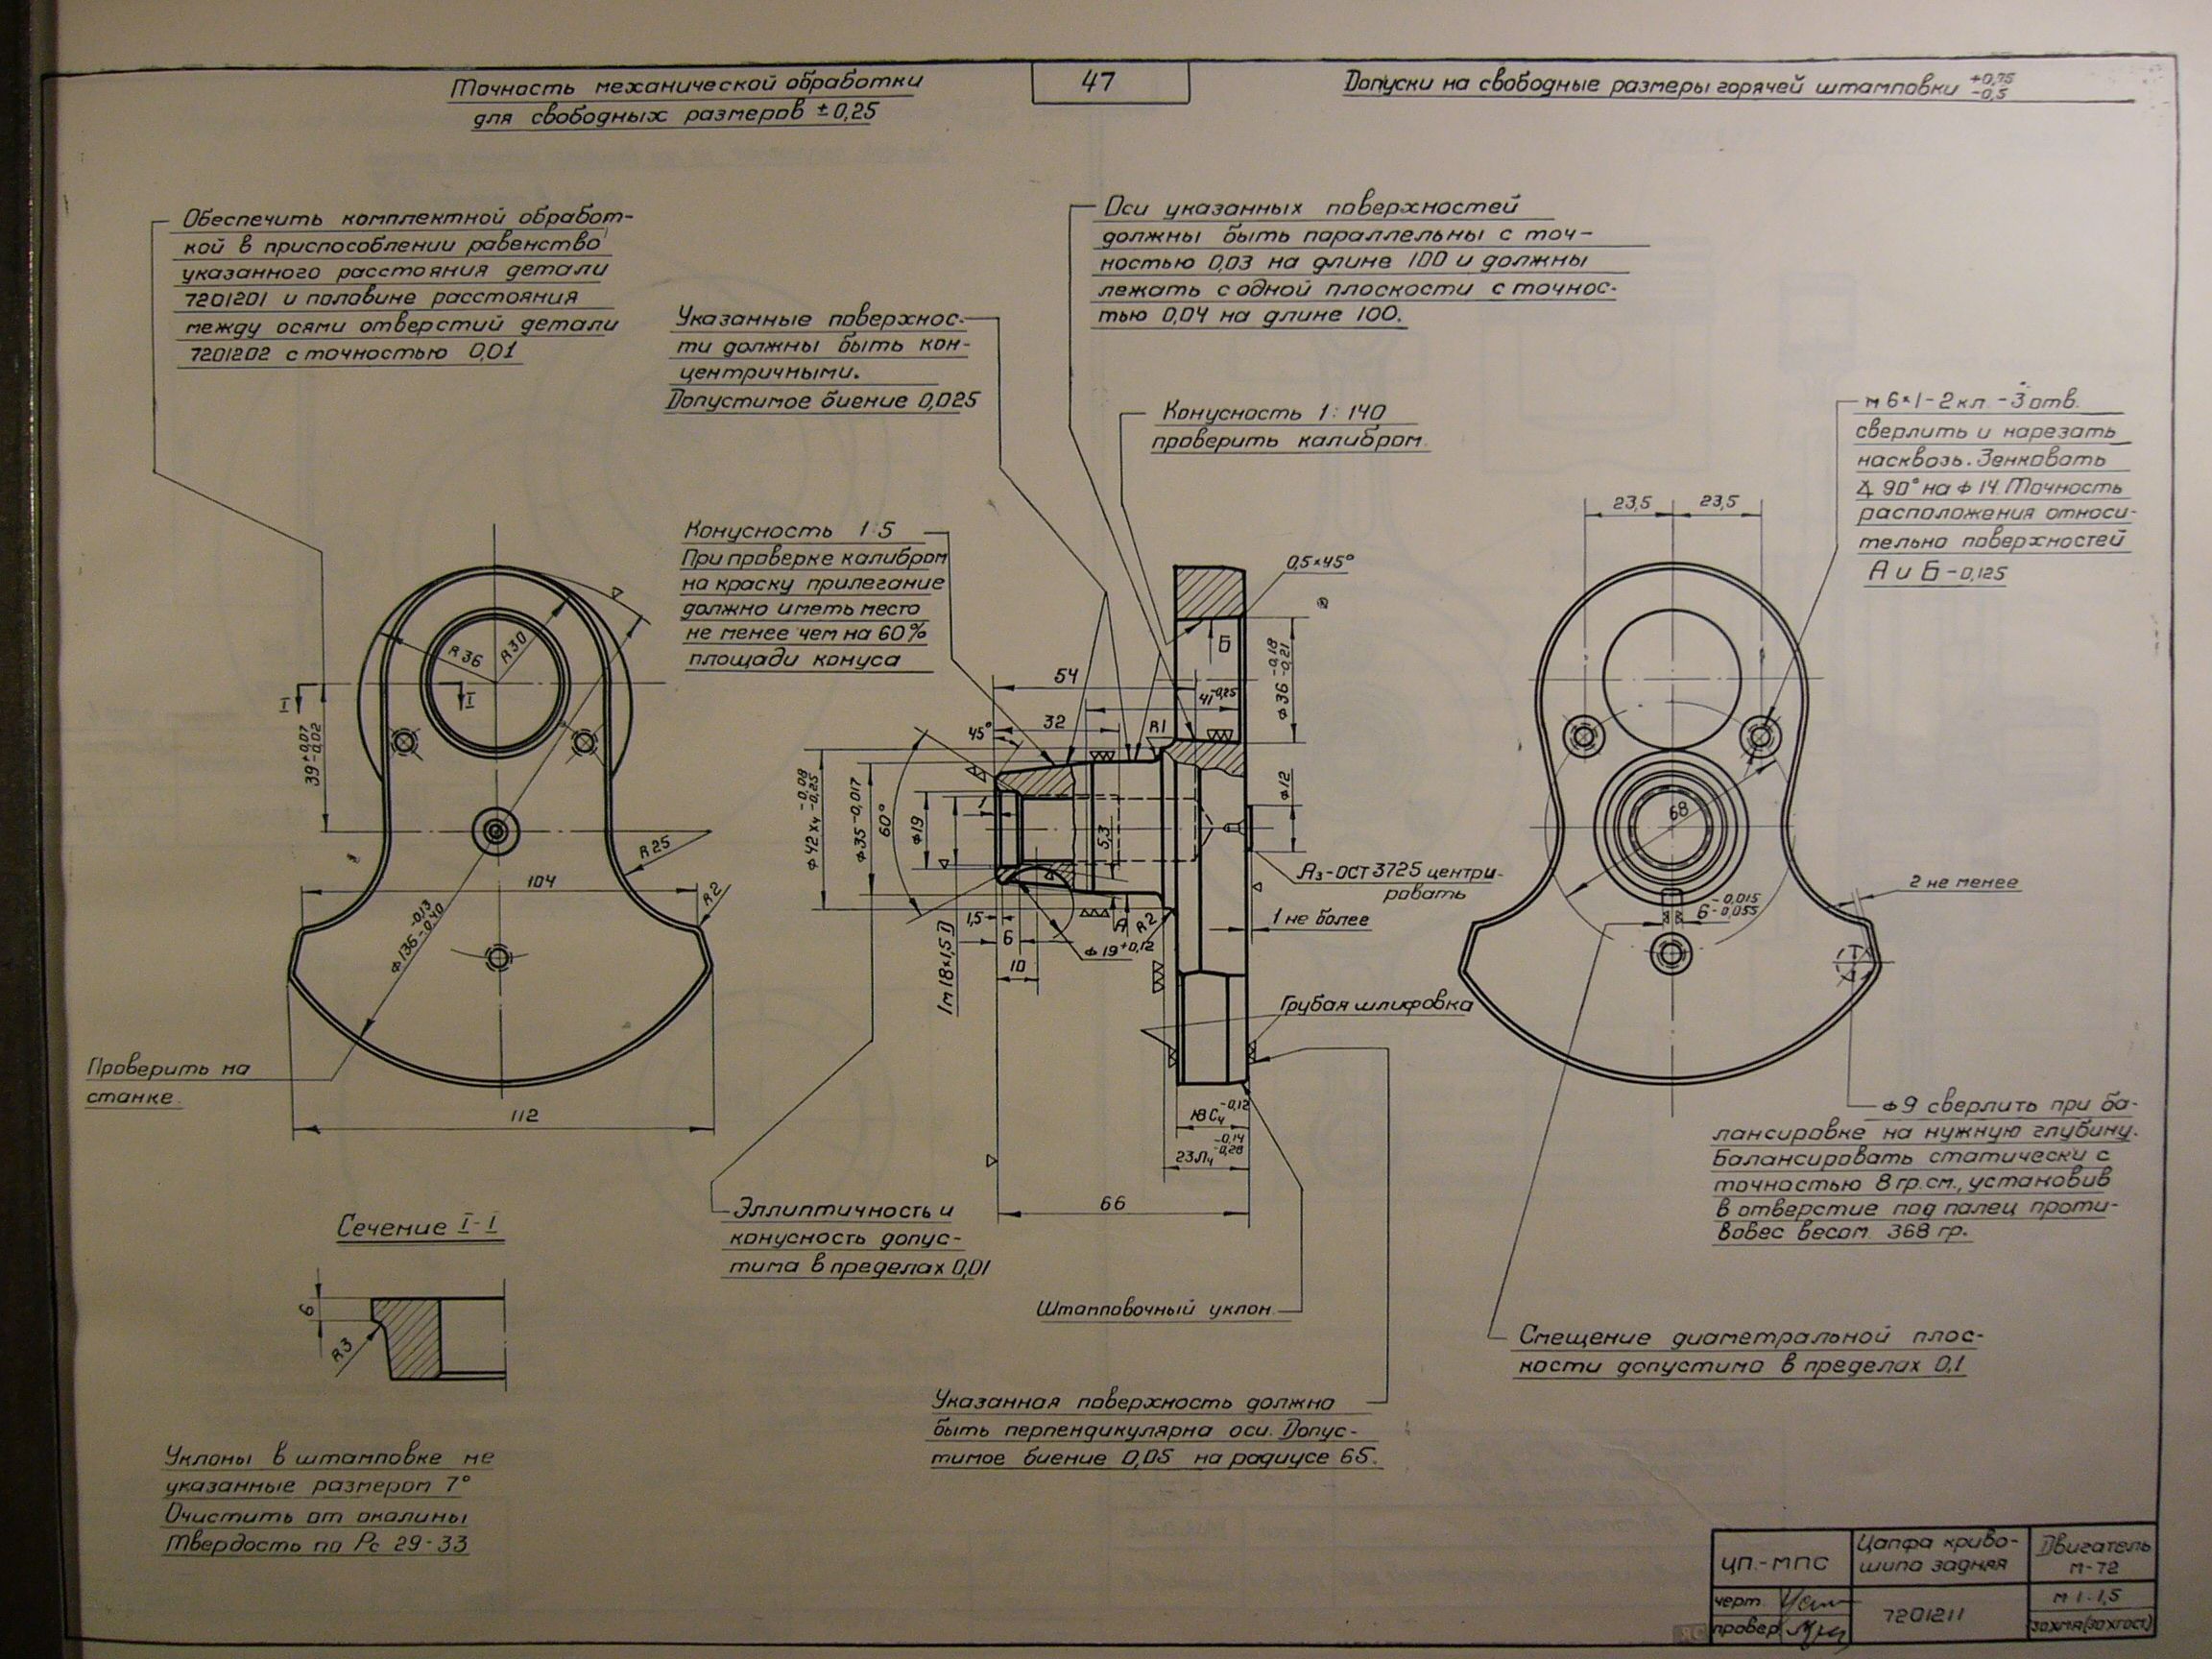 Точность механической обработки
для свободных размеров ± 0,25
47
Допуски на свободные размеры горячей штамповки +0,75 -0,5
Обеспечить комплектной обработ-
кой в приспособлении равенство
указанного расстояния детали
7201201 и половине расстояния
между осями отверстий детали
7201202 с точностью 0,01
Указанные поверхнос-
ти должны быть кон-
центричными.
Допустимое биение 0,025
Оси указанных поверхностей
должны быть параллельны с точ-
ностью 0,03 на длине 100 и должны
лежать с одной плоскости с точнос-
тью 0,04 на длине 100.
Конусность 1:140
проверить калибром.
м 6×1-2 кл. - 3 отв.
сверлить и нарезать
насквозь. Зенковать
∡ 90° на ф 14. Точность
расположения относи-
тельно поверхностей
А и Б - 0,125
Конусность 1:5
При проверке калибром
на краску прилегание
должно иметь место
не менее чем на 60%
площади конуса
R36
R30
I
I
39 +0,07 -0,02
R25
104
R2
ф 136 -0,13 -0,40
112
Проверить на
станке.
54
41 -0,25
32
45°
R1
0,5×45°
Б
ф 36 -0,18 -0,21
ф 42 х4 -0,08 -0,25
ф 35 -0,017
60°
ф 19
5,3
ф 12
А3-ОСТ 3725 центри-
ровать
1 не более
1,5
6
10
1м 18×1,5 D
А
R2
ф 19 +0,12
Грубая шлифовка
18 С4 -0,12
23 Л4 -0,14 -0,28
66
23,5
23,5
68
6 -0,015 -0,055
2 не менее
ф 9 сверлить при ба-
лансировке на нужную глубину.
Балансировать статически с
точностью 8 гр.см., установив
в отверстие под палец проти-
вовес весом 368 гр.
Эллиптичность и
конусность допус-
тима в пределах 0,01
Штамповочный уклон
Смещение диаметральной плос-
кости допустимо в пределах 0,1
Указанная поверхность должна
быть перпендикулярна оси. Допус-
тимое биение 0,05 на радиусе 65.
Сечение I-I
6
R3
Уклоны в штамповке не
указанные размером 7°
Очистить от окалины
Твердость по Рс 29-33
ЦП.-МПС
Цапфа криво-
шипа задняя
Двигатель
М-72
черт.
провер.
7201211
М 1-1,5
30ХМА(30ХГОСТ)
ЯС